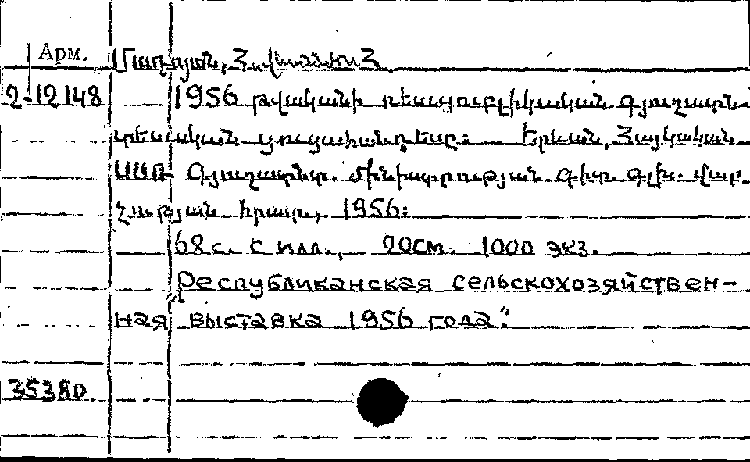 Арм.
Մաղոյան, Հ.
2-12148 1956 թվականի ռեսպուբլիկական գյուղատն-
տեսական ցուցահանդեսը։ Երևան, Հայկական
ՍՍՌ Գյուղատնտ. մինիստրության գիտ. գլխ. վար-
չության հրատ., 1956։
68 с. с илл., 20см. 1000 экз.
Республиканская сельскохозяйствен-
ная выставка 1956 года".
35380.